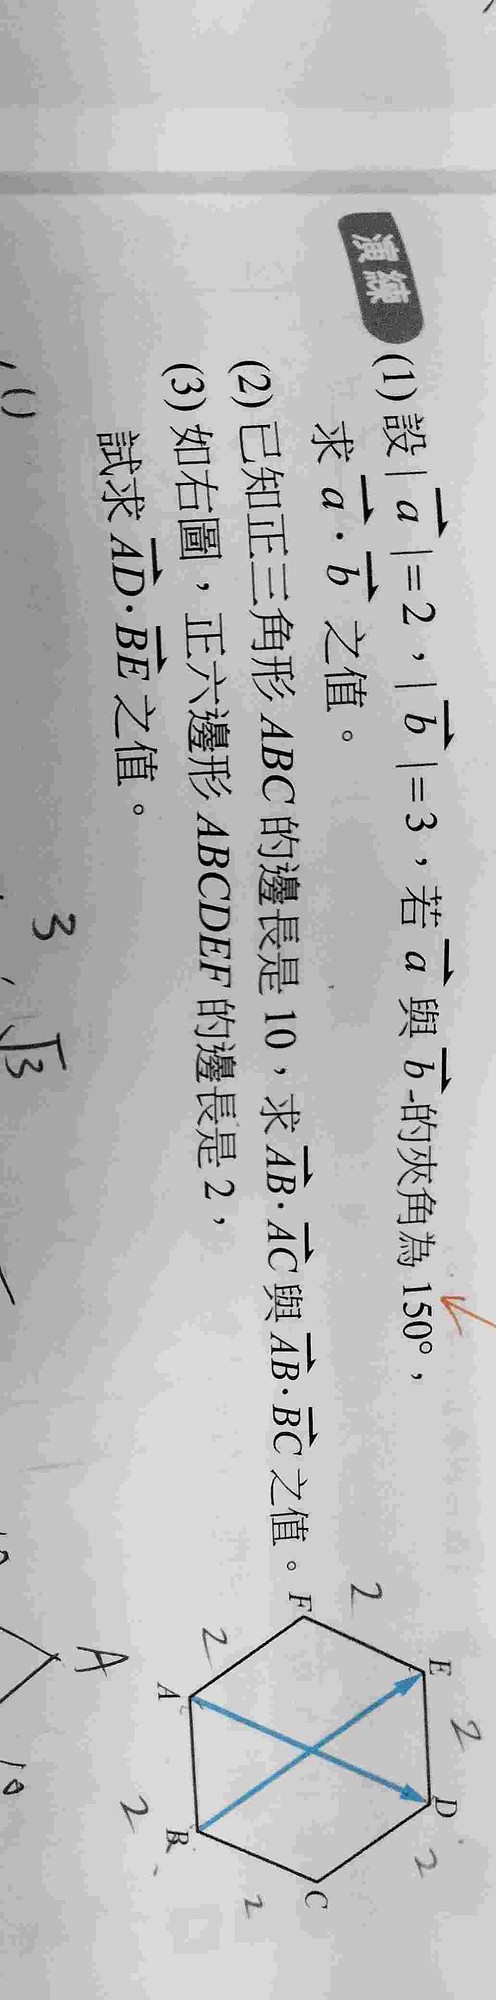 演練
(1) 設 | a⃗ | = 2，| b⃗ | = 3，若 a⃗ 與 b⃗ 的夾角為 150°，
求 a⃗ · b⃗ 之值。
(2) 已知正三角形 ABC 的邊長是 10，求 AB⃗ · AC⃗ 與 AB⃗ · BC⃗ 之值。
(3) 如右圖，正六邊形 ABCDEF 的邊長是 2，
試求 AD⃗ · BE⃗ 之值。
E
2
D
2
2
F
C
2
A
B
2
2
3
√3
A
10